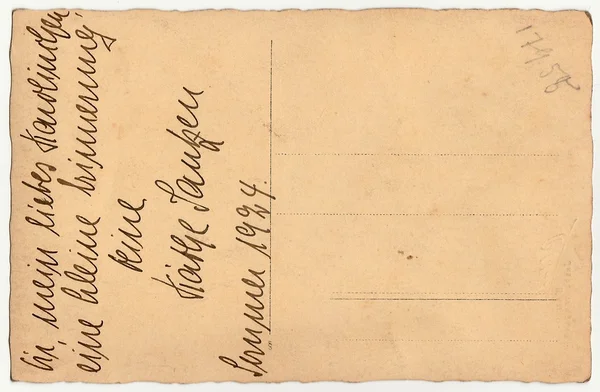 Dir, mein liebes Karolinchen,
eine kleine Erinnerung,
deine
Käthe
Sommer 1924.